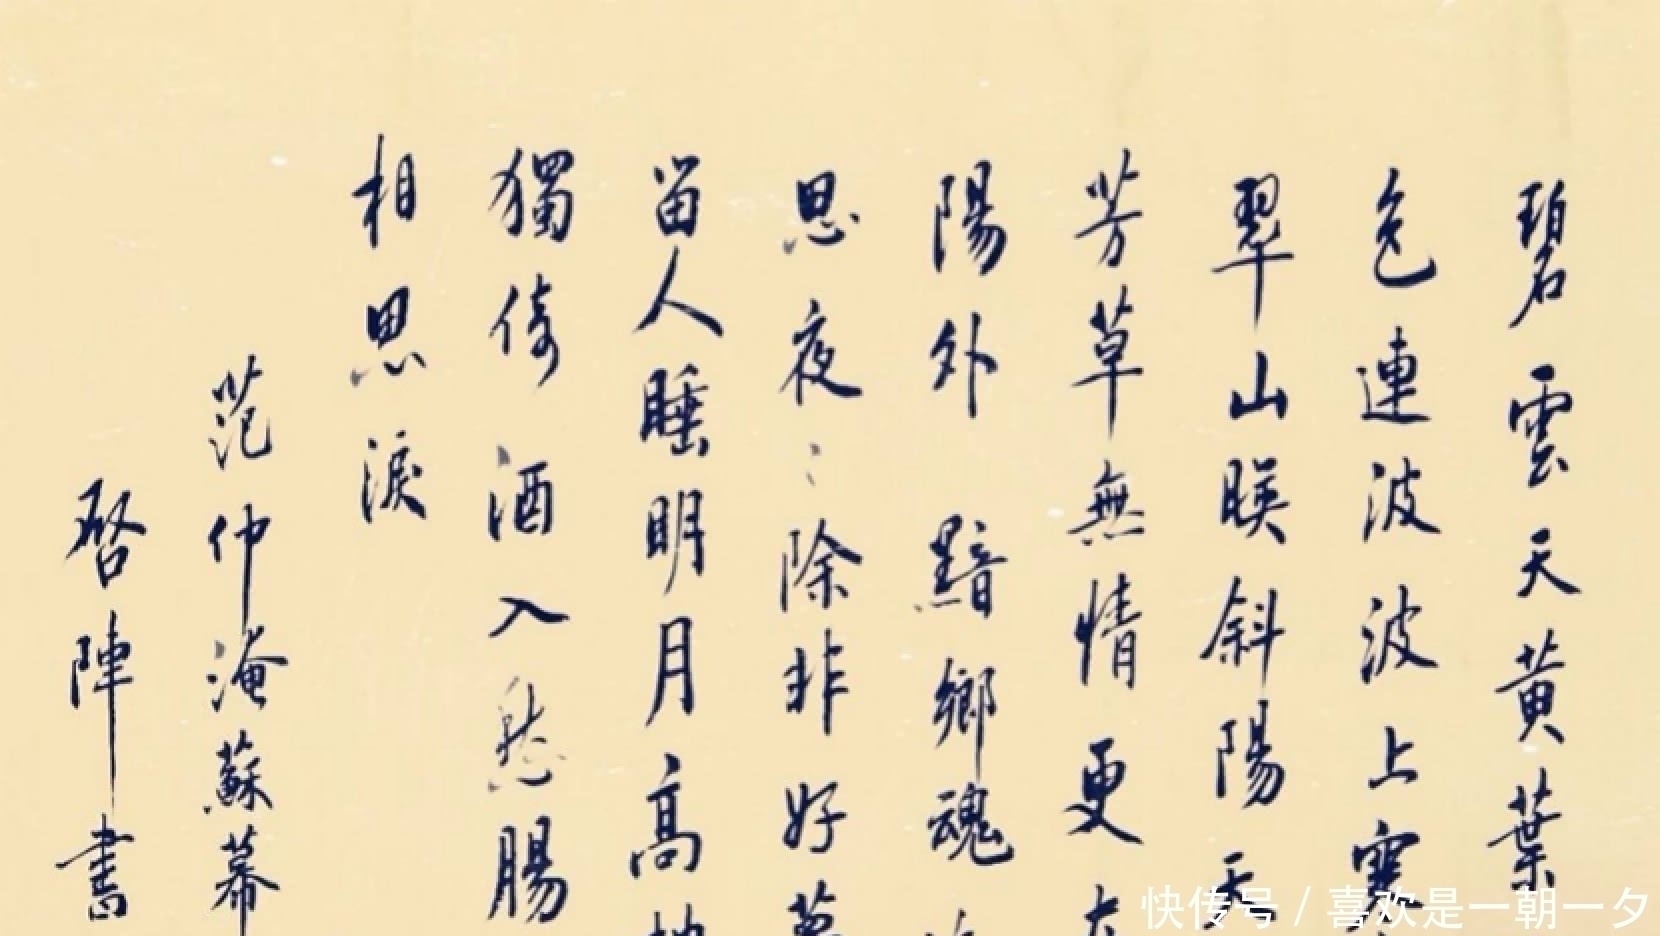 碧雲天黄葉
色連波波上寒
翠山映斜陽天
芳草無情更在
陽外黯鄉魂
思夜〻除非好夢
留人睡明月高
獨倚酒入愁腸
相思淚
范仲淹蘇幕
啓陣書
快传号/喜欢是一朝一夕